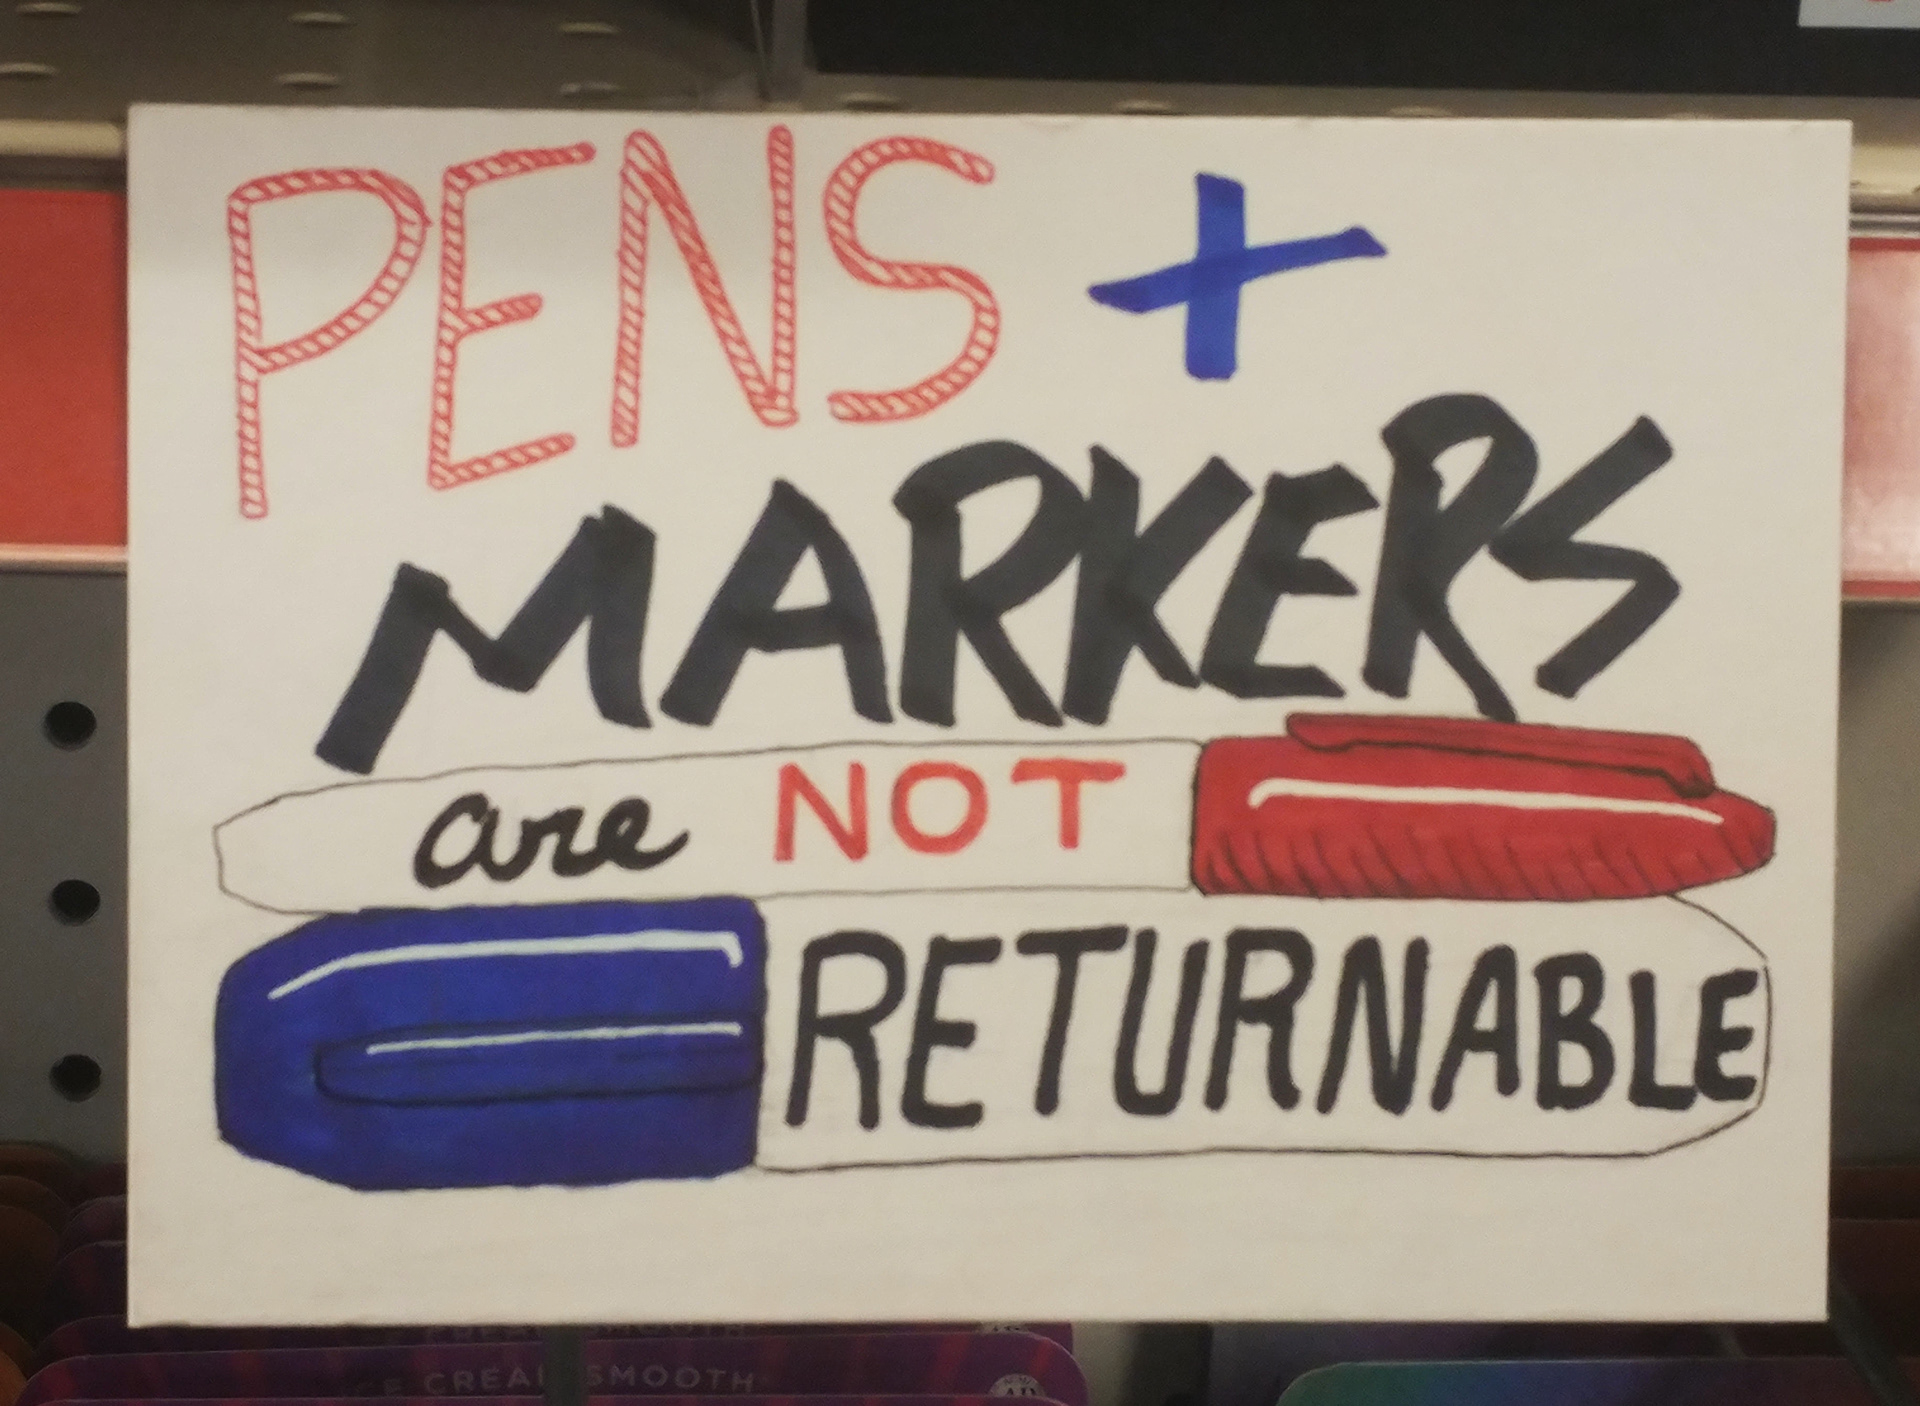 PENS +
MARKERS
are NOT
RETURNABLE
CREAM SMOOTH